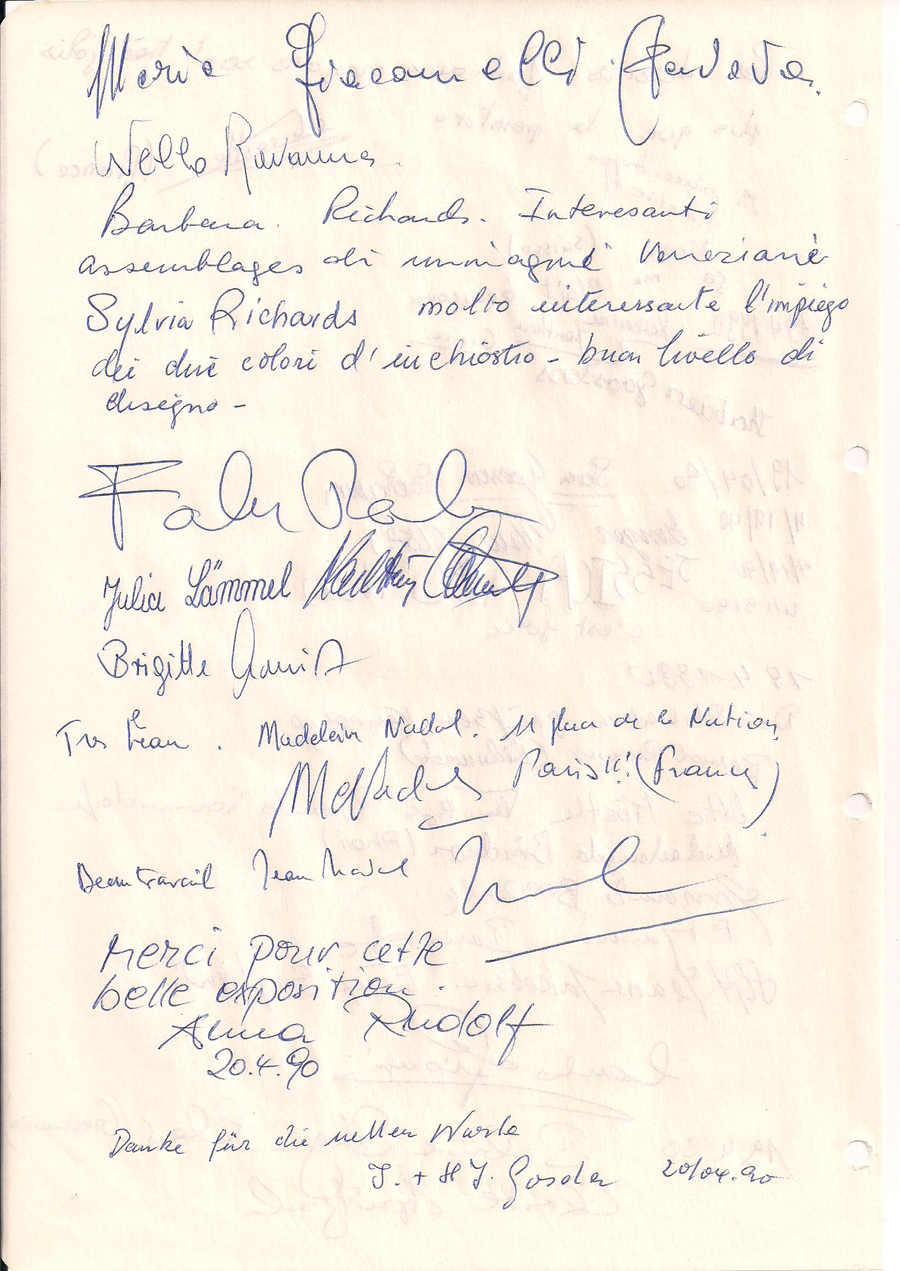 Maria Giacomelli
Nello Ravanna.
Barbara. Richards. Interesanti
assemblages di immagini Veneziane
Sylvia Richards molto interessante l'impiego
dei due colori d'inchiostro - buon livello di
disegno -
Julia Lämmel
Brigitte
Tres beau. Madeleine Nadal. 11 place de la Nation
Paris 11! (France)
MNadal
Beau travail Jean Nadal
Merci pour cette
belle exposition.
Anna Rudolf
20.4.90
Danke für die netten Worte
J. + H J. Gosda 20/04.90